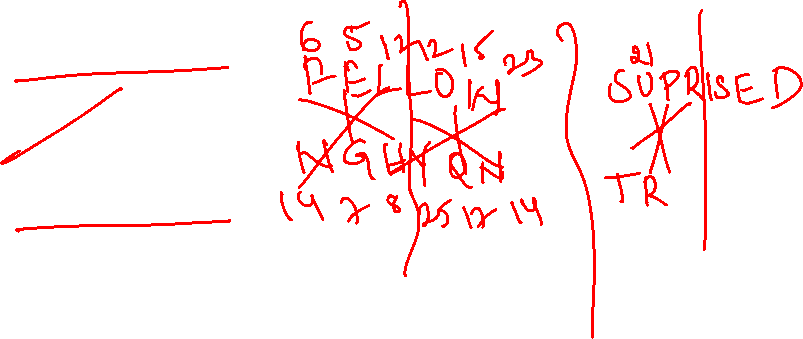 6 5 12 12 15 23
FELLOW
NGHYQN
14 7 8 25 17 14
21
SUPRISED
TR